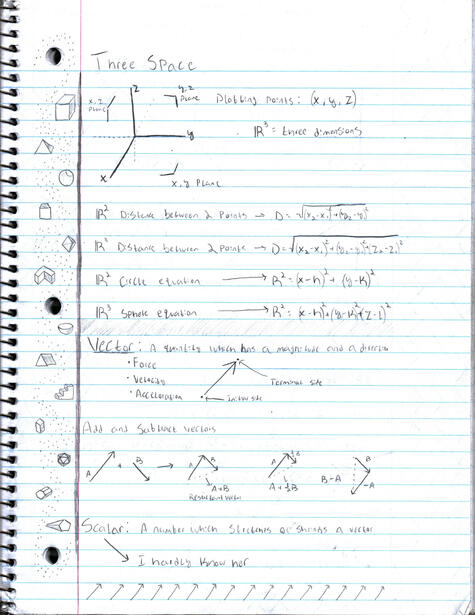 Three Space
z
x, z
Plane
y, z
Plane
Plotting points: (x, y, z)
y
ℝ³ = three dimensions
x
x, y Plane
ℝ² Distance between 2 points → D = √(x₂-x₁)²+(y₂-y₁)²
Distance between 2 points → D = √(x₂-x₁)²+(y₂-y₁)²+(z₂-z₁)²
ℝ² Circle equation → R² = (x-h)² + (y-k)²
ℝ³ Sphere equation → R² = (x-h)²+(y-k)²+(z-l)²
Vector: A quantity which has a magnitude and a direction
· Force
· Velocity
· Acceleration
Terminal side
Initial side
Add and Subtract vectors
A + B → A B
A+B
Resultant vector
A ½B
A+½B
B-A
B
-A
Scalar: A number which stretches or shrinks a vector
I hardly know her